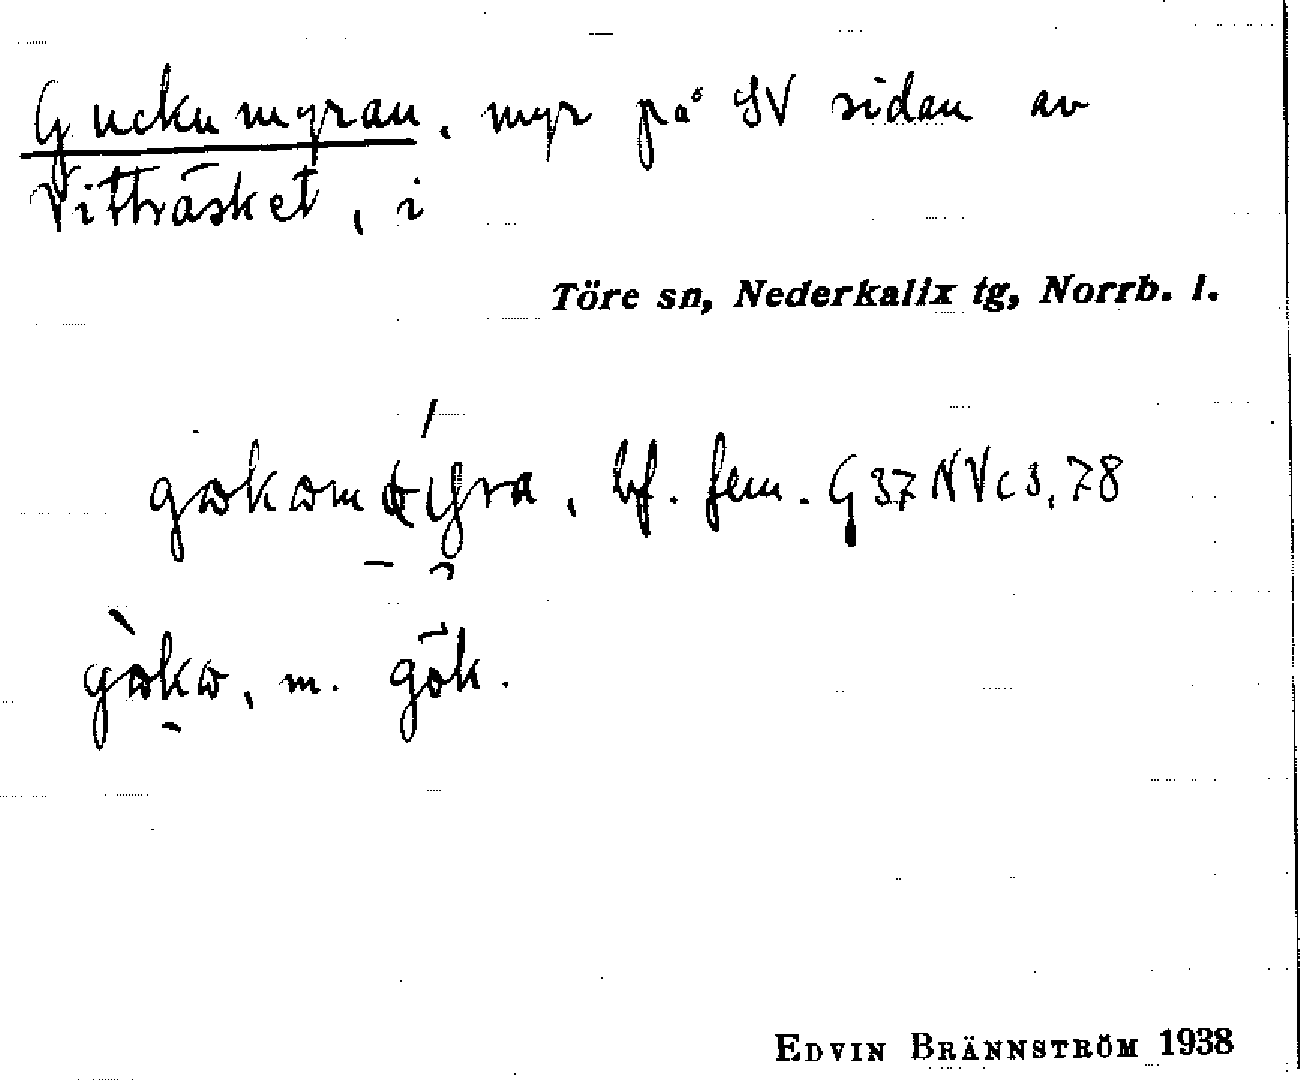 Guckumyran, myr på SV sidan av
Vitträsket, i
Töre sn, Nederkalix tg, Norrb. l.
bf. fem. G 37 NV c 3, 78
m. gök.
EDVIN BRÄNNSTRÖM 1938